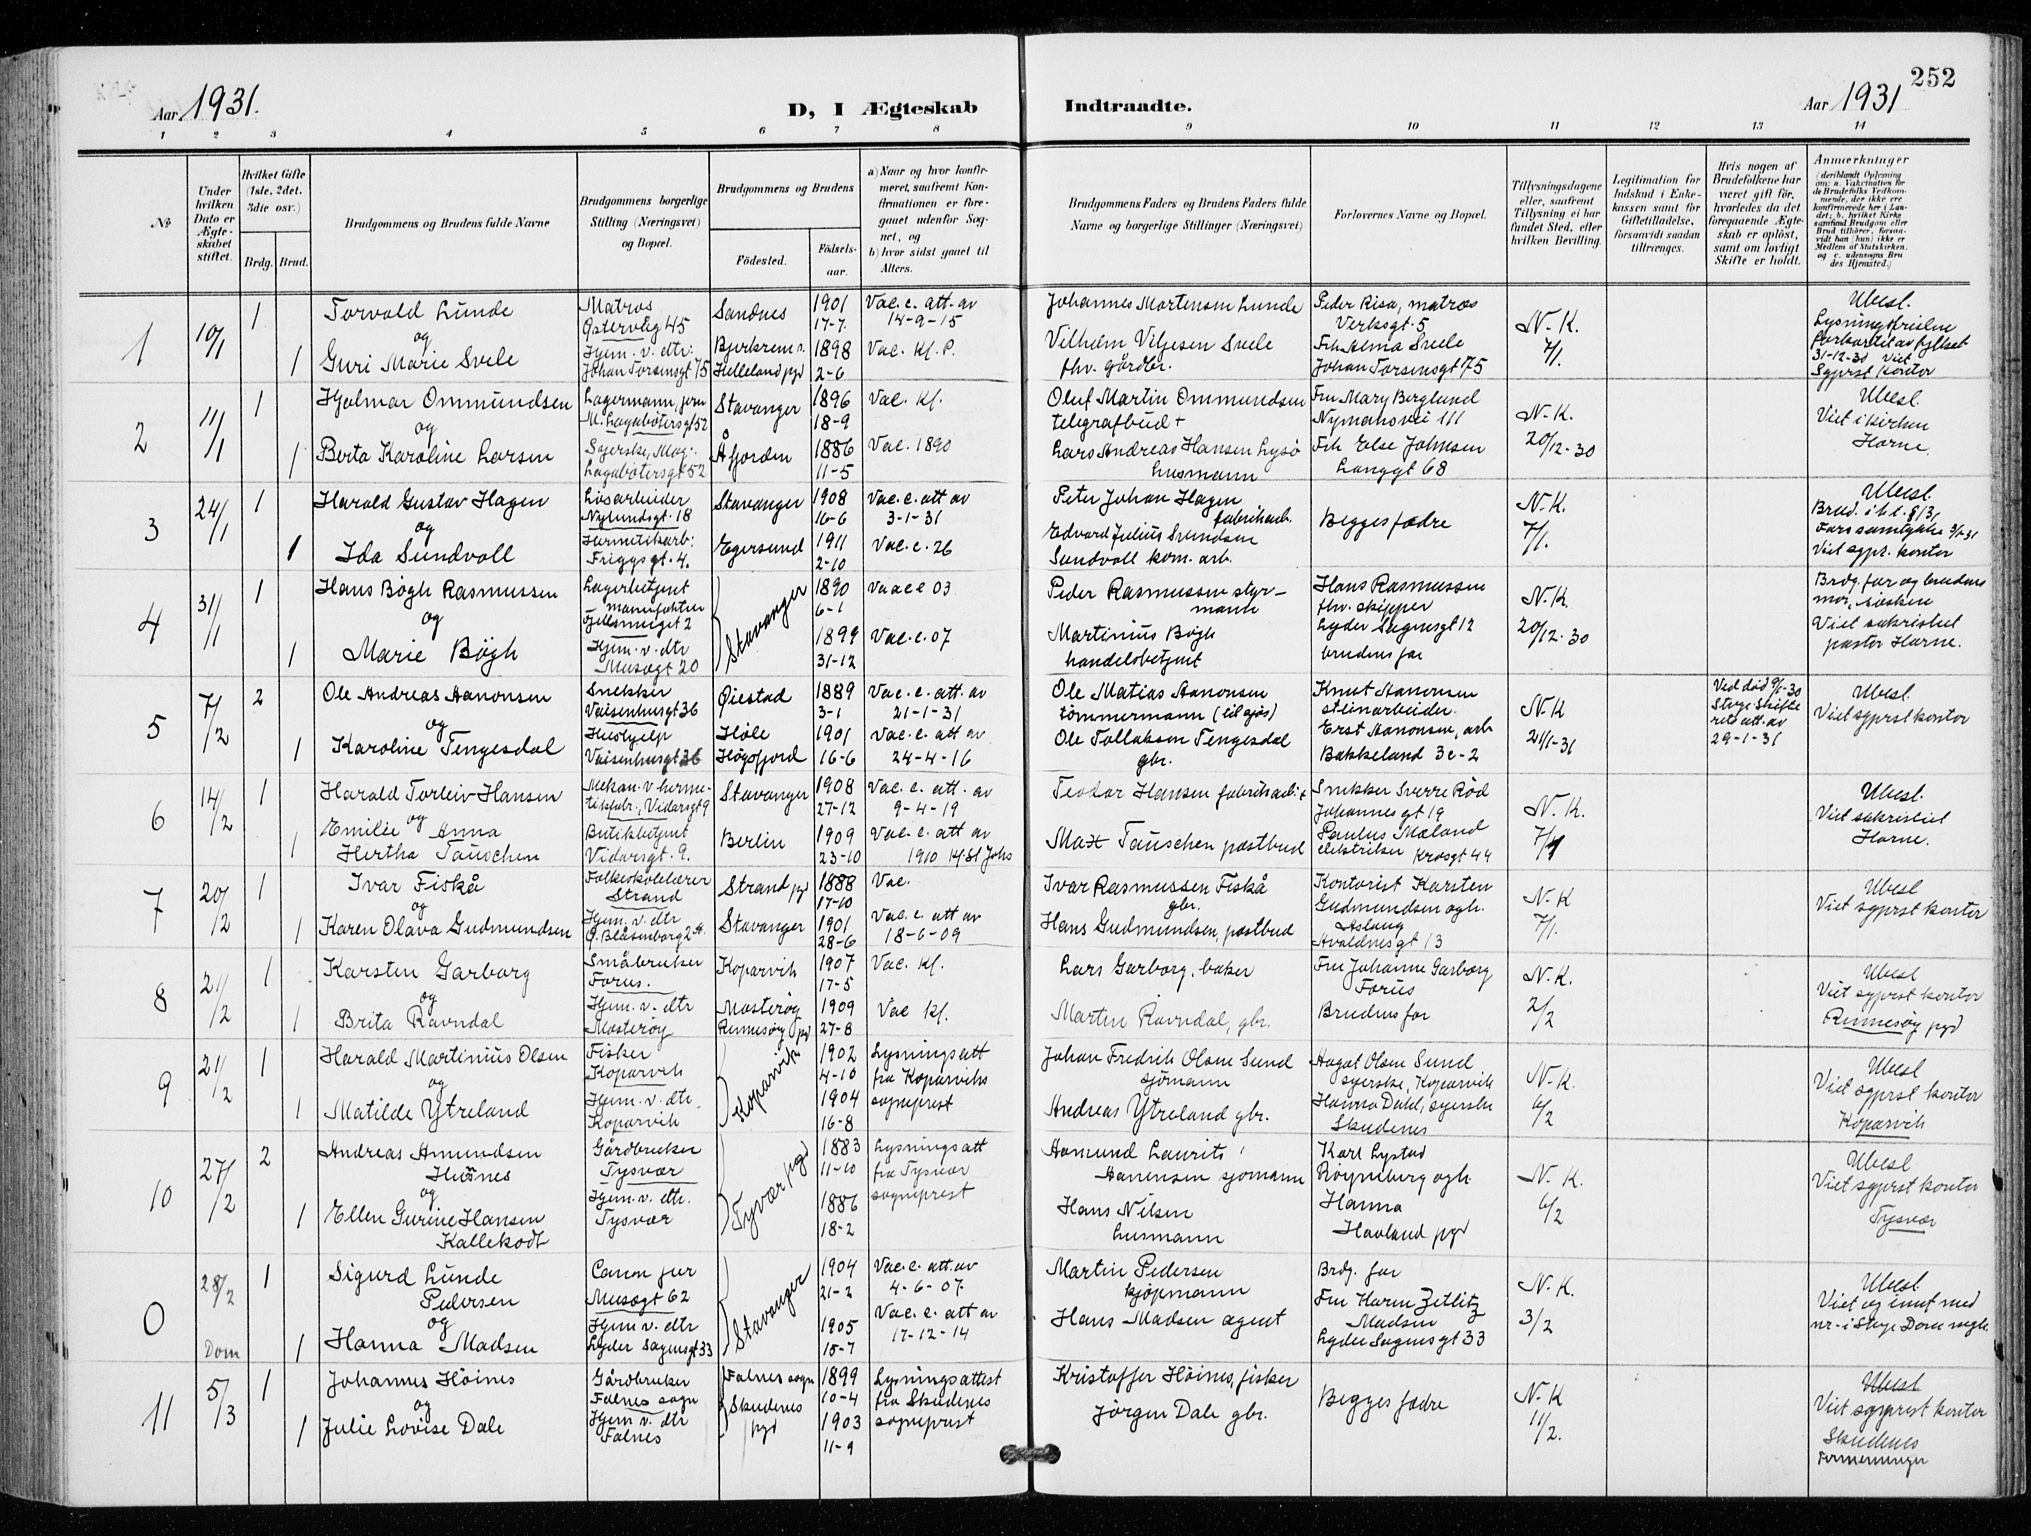 252
Aar 1931.
D, I Ægteskab Indtraadte.
Aar 1931
1 2 3 4 5 6 7 8 9 10 11 12 13 14
№
Under hvilken Dato er Ægteskabet stiftet.
Hvilket Gifte (1ste, 2det, 3die osv.)
Brdg. Brud.
Brudgommens og Brudens fulde Navne
Brudgommens borgerlige Stilling (Næringsvei) og Bopæl.
Brudgommens og Brudens
Födested.
Födsels-aar.
a) Naar og hvor konfirmeret, saafremt Konfirmationen er foregaaet udenfor Sognet, og
b) hvor sidst gaaet til Alters.
Brudgommens Faders og Brudens Faders fulde Navne og borgerlige Stillinger (Næringsvei)
Forlovernes Navne og Bopæl.
Tillysningsdagene eller, saafremt Tillysning ei har fundet Sted, efter hvilken Bevilling.
Legitimation for Indskud i Enkekassen samt for Giftetilladelse, forsaavidt saadan tiltrænges.
Hvis nogen af Brudefolkene har været gift för, hvorledes da det foregaaende Ægteskab er oplöst, samt om lovligt Skifte er holdt.
Anmærkninger
1 10/1 1 Torvald Lunde
Matros Østervåg 45
Sandnes 1901 17-7.
Vac. e. att. av 14-9-15
Johannes Mortensen Lunde
Peder Risa, matros Verksgt. 5
N.K. 7/1.
Ubesl.
og
1 Guri Marie Svele
Hjem. v. dtr. Johan Torsensgt 75
Bjerkreim s. Helleland pgd 1898 2-6
Vac. Kf. P.
Vilhelm Viljesen Svele fhv. gårdbr.
Frk Alma Svele Johan Torsensgt 75
31-12-30 Viet Sgprst kontor
2 11/1 1 Hjalmar Ommundsen
Lagermann, jern M. Lagabøtersgt 52
Stavanger 1896 18-9
Vac. Kf.
Oluf Martin Ommundsen telegrafbud +
Fru Mary Berglund Nymansvei 111
N.K. 20/12-30
Ubesl. Viet i kirken Horne.
og
1 Berta Karoline Larsen
Syerske, Mag. Lagabøtersgt 52
Åfjorden 1886 11-5
Vac. 1890
Lars Andreas Hansen Lysø husmann
Frk Else Johnsen Langgt 68
3 24/1 1 Harald Gustav Hagen
Løsarbeider Nylundsgt. 18
Stavanger 1908 16-6
Vac. e. att av 3-1-31
Peter Johan Hagen fabrikarb.
Begges fædre
N.K. 7/1.
Ubesl.
og
1 Ida Sundvoll
Hermetikarb. Friggsgt. 4.
Egersund 1911 2-10
Vac. e. 26
Edvard Julius Svendsen Sundvoll kom. arb.
Fars samtykke 3/1-31 Viet sgpr. kontor
4 31/1 1 Hans Bøgh Rasmussen
Lagerbetjent
Stavanger 1890 6-1
Vac e 03
Peder Rasmussen styrmann
Hans Rasmussen fhv. skipper Lyder Sagensgt 12
N.K. 20/12-30
Brdg. far og brudens mor, søsken Viet sakristiet pastor Horne.
og
1 Marie Bøgh
Hjem. v. dtr Musegt 20
1899 31-12
Vac. e. 07
Martinius Bøgh handelsbetjent
brudens far
5 7/2 2 Ole Andreas Aanonsen
Snekker Vaisenhusgt 36
Øiestad 1889 3-1
Vac. e. att. av 21-1-31
Ole Matias Aanonsen tømmermann (til sjøs)
Knut Aanonsen stenarbeider
N.K 21/1-31
Ved død 9/1-30 Stvgr Skifterett att. av 29-1-31
Ubesl. Viet sgprst kontor
og
1 Karoline Tengesdal
Hushjelp Vaisenhusgt 36
Høle Høgsfjord 1901 16-6
Vac. e. att av 24-4-16
Ole Tollaksen Tengesdal gbr.
Erst Aanonsen, arb Bakkeland 3e-2
6 14/2 1 Harald Torleiv Hansen
Mekan. v hermetikfabr., Vidarsgt 9
Stavanger 1908 27-12
Vac. e. att. av 9-4-19
Teodor Hansen fabrikarb. +
Snekker Sverre Rød Johannesgt 19
N.K.
Ubesl. Viet sakristiet Horne.
og
1 Emilie Anna Hertha Tauschen
Butikbetjent Vidarsgt. 9.
Berlin 1909 23-10
Vac. e. att av 1910
Max Tauschen postbud
Paulus Mæland elektriker Krosgt 44
7 20/2 1 Ivar Fiskå
Folkeskolelærer Strand
Strand pgd 1888 17-10
Vac.
Ivar Rasmussen Fiskå gbr.
Kontorist Karsten Gudmundsen ogh.
N.K 7/1.
Ubesl Viet sgprst kontor
og
1 Karen Olava Gudmundsen
Hjem. v. dtr Ø. Blåsenborg 2 A.
Stavanger 1901 28-6
Vac. e att av 18-6-09
Hans Gudmundsen, postbud
Aslaug Avaldsnesgt 13
8 21/2 1 Karsten Garborg
Småbruker Forus.
Kopervik 1907 17-5
Vac. Kf.
Lars Garborg, baker
Fru Johanne Garborg Forus
N.K. 2/2
Ubesl Viet sgprst kontor Rennesøy pgd
og
1 Brita Ravndal
Hjem. v. dtr Mosterøy
Mosterøy Rennesøy pgd 1909 27-8
Vac Kf.
Martin Ravndal, gbr.
Brudens far
9 21/2 1 Harald Martinius Olsen
Fisker Kopervik
Kopervik 1902 4-10
Lysningsatt fra Koperviks sogneprest
Johan Fredrik Olsen Sund sjømann
Hagat Olsen Sund syerske, Kopervik
N.K. 6/2
Ubesl Viet sgprst kontor Kopervik
og
1 Matilde Ytreland
Hjem. v. dtr. Kopervik
1904 16-8
Andreas Ytreland gbr.
Hanna Dahl, syerske Skudenes
10 27/2 2 Andreas Amundsen Hesnes
Gårdbruker Tysvær
Tysvær pgd 1883 11-10
Lysningsatt fra Tysvær sogneprest
Aamund Laurits Aanensen sjømann
Karl Lystad Røyneberg ogh.
N.K. 6/2
Ubesl Viet sgprst kontor Tysvær
og
1 Ellen Gurine Hansen Kallekodt
Hjem. v. dtr. Tysvær
1886 18-2
Hans Nilsen husmann
Hanna Haaland pgd
0 28/2 Dom 1 Sigurd Lunde Pedersen
Musegt 62
Stavanger 1904 21-2
Vac. e. att. av 4-6-07
Martin Pedersen kjøpmann
Brdg. far
N.K. 3/2
Ubesl Viet og innf med nr. i Stvgr Dom
og
1 Hanna Madsen
Hjem v. dtr Lyder Sagensgt 33
1905 15-7
Vac. e. att av 17-12-14
Hans Madsen agent
Fru Karen Zetlitz Madsen Lyder Sagensgt 33
11 5/3 1 Johannes Höines
Gårdbruker Falnes sogn
Falnes sogn Skudenes pgd 1899 10-4
Lysningsattest fra Skudenes sogneprest
Kristoffer Höines, fisker
Begges fædre
N.K 11/2.
Ubesl Viet sgprest kontor Skudenes Fermenninger
og
1 Julie Lovise Dale
Hjem v. dtr Falnes
1903 11-9
Jörgen Dale gbr.